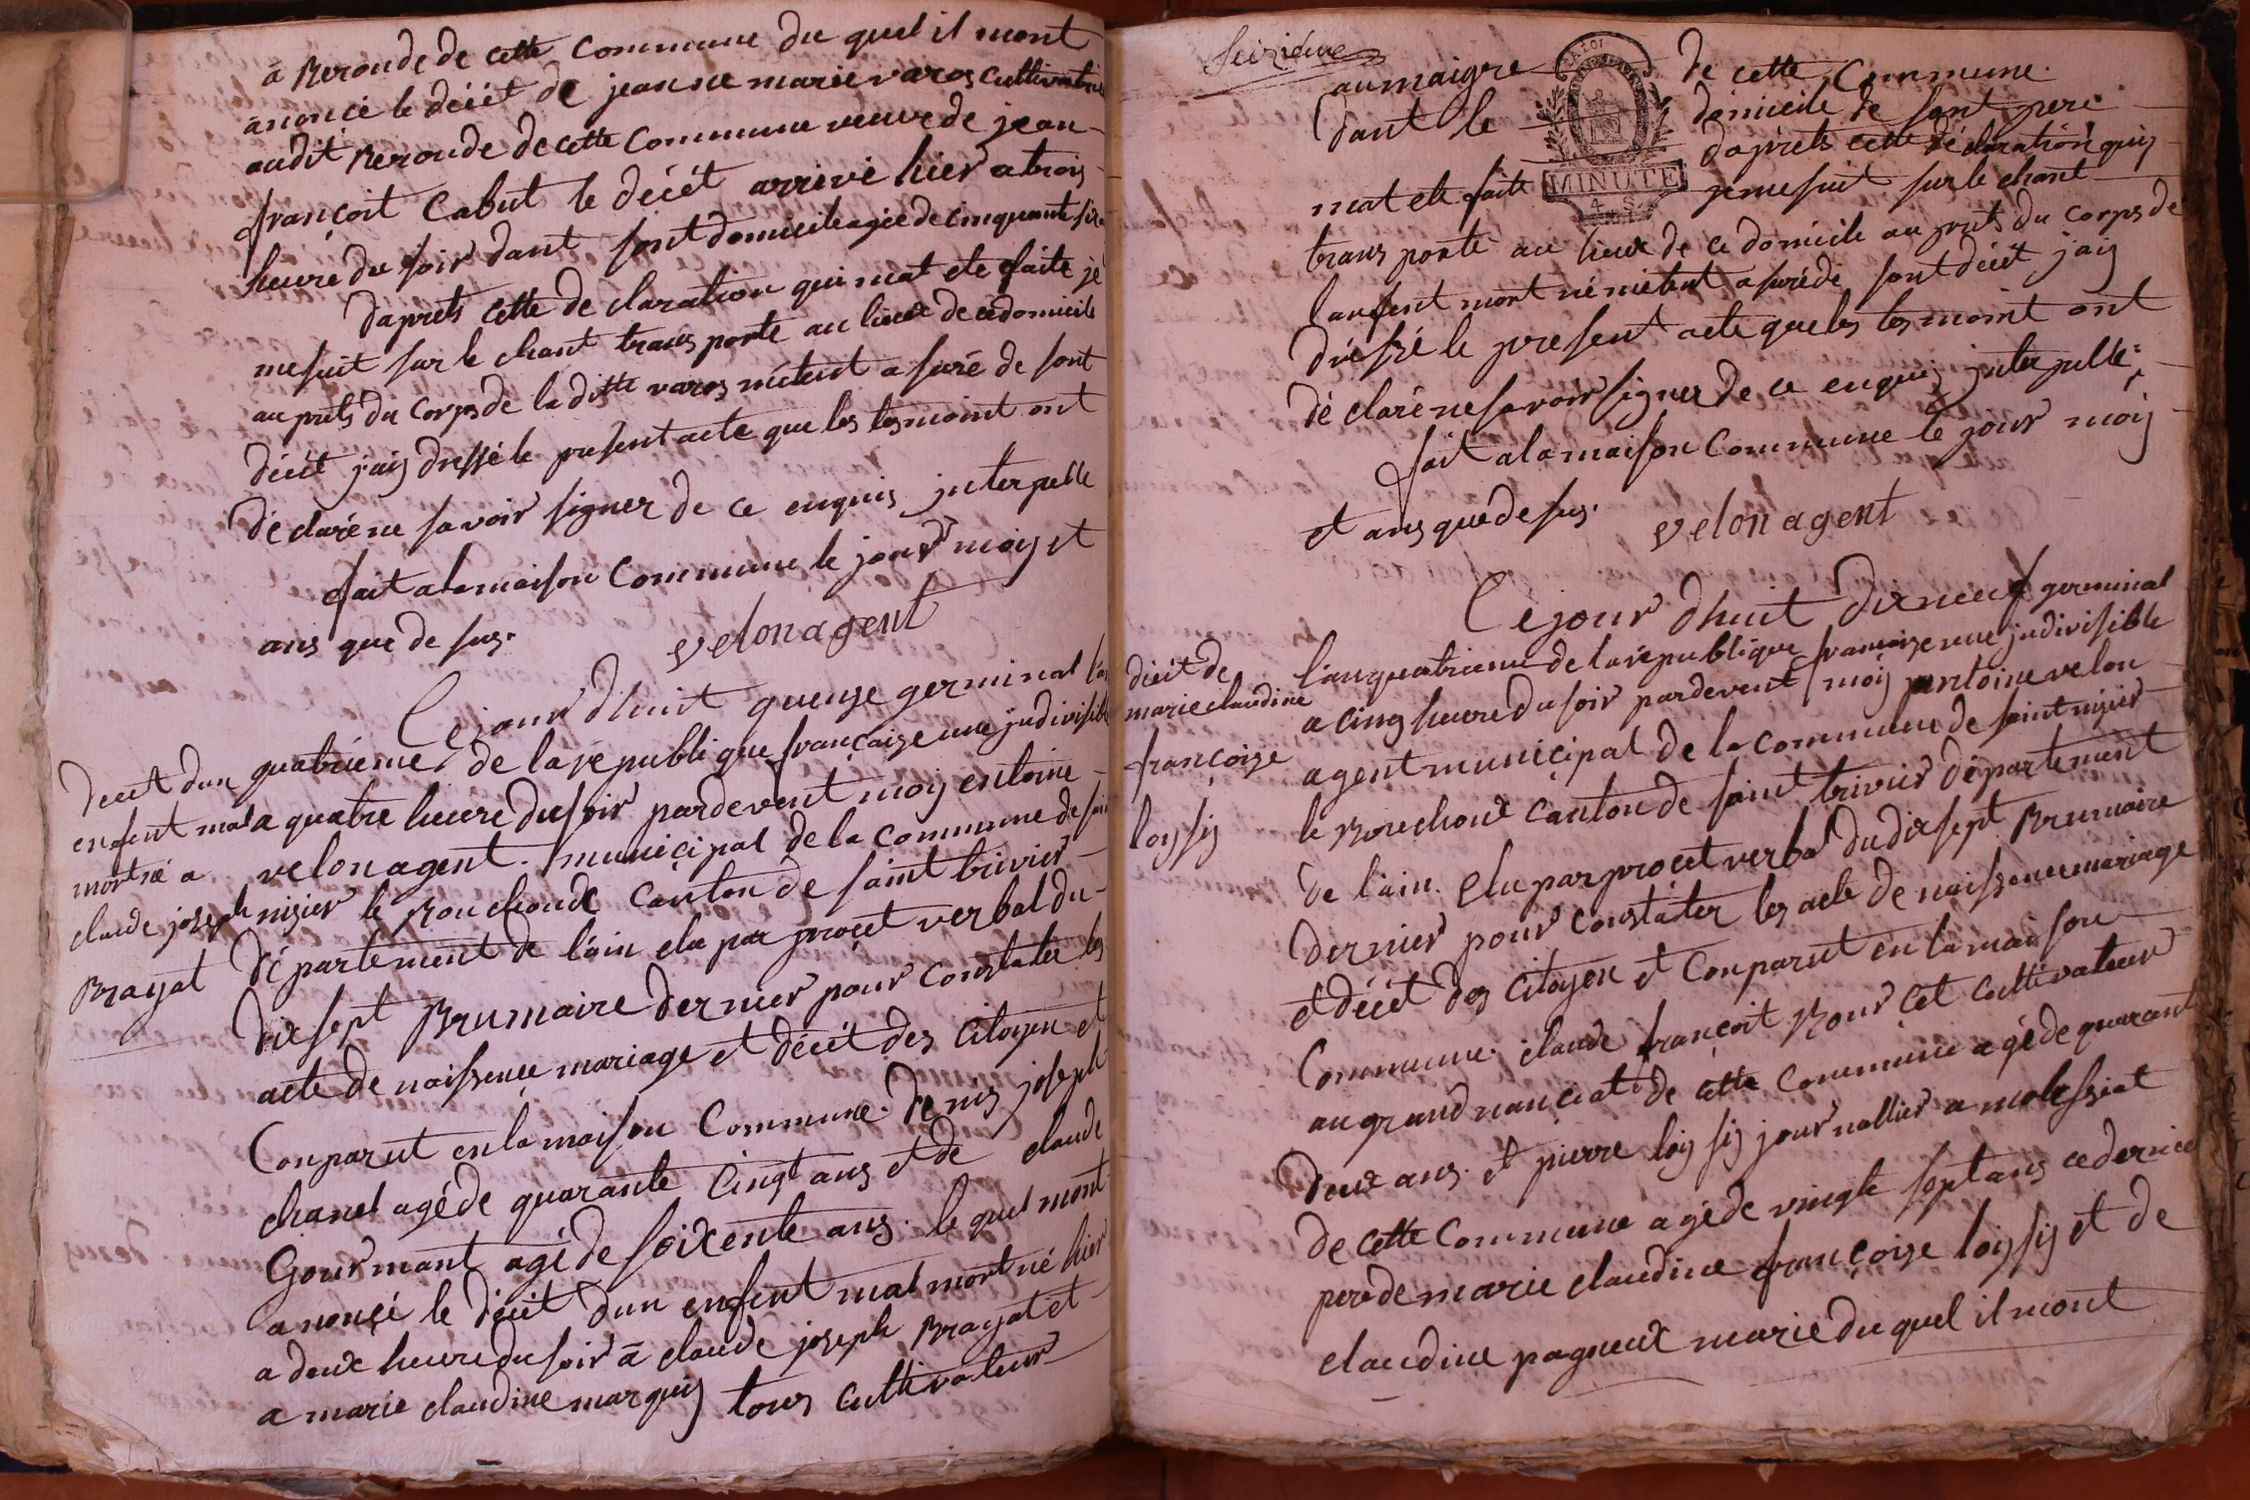 a Reronde de cette Commune du quel il mont
anoncé le décét de jeanne marie varos cultivatrice
audit Reronde de cette Commune veuve de jean
françoit Cabut le décét arrivé hier a trois
heure du soir dant sont domicile agée de cinquante six
daprets cette de claration qui mat ete faite je
me suit sur le chant trans porte au lieux de ce domicile
au prets du Corps de la ditte varos métent a suré de sont
décét jaiy dressé le present acte que les tesmoint ont
dé claré ne savoir signer de ce enquis jnterpellé
fait a la maison Commune le jour moiy et
ans que de sus.
velon agent
Ce jour dhuit quenze germinal l'an
quatrieme de la republique françaize une jndivisible
a quatre heure du soir pardevent moiy entoine
velon agent municipal de la Commune de saint
nizier le Bouchoux Canton de saint trivier
Département de l'ain elu par procet verbal du
dixsept Brumaire dernier pour constater les
acte de naissence mariage et décét des Citoyen et
Conparut en la maison Commune. denis joseph
chanel agé de quarante Cinqt ans et de claude
Gourmant agé de soixente ans. le quel mont
anoncé le décét dun enfent mal mort né hier
a deux heure du soir a claude joseph Brayat et
a marie claudine marquis tous cultivateur
decét dun
enfent mal
mort né a
claude joseph
Brayat
Seizième
au maigre de cette Commune.
dant le domicile de sont pere
daprets cette déclaration quiy
mat ete faite je me suit sur le chant
trans porté au lieux de ce domicile au prets du Corps de
l'anfent mort né métent a suré de sont décét jaiy
dressé le present acte que les tesmoint ont
dé claré ne savoir signer de ce enquis jnterpellé
fait a la maison Commune le jour moiy
et ans que de sus.
velon agent
MINUTE
Ce jour dhuit dixneuf germinal
l'an quatrieme de la république françoize une jndivisible
a cinq heure du soir pardevent moiy antoine velon
agent municipal de la Commune de saint nizier
le Bouchoux Canton de saint trivier département
de l'ain. elu par procet verbal du dixsept Brumaire
dernier pour constater les acte de naissence mariage
et décét des Citoyen et Conparut en la maison
Commune. claude françoit Rour cet cultivateur
au grand nanciat de cette Commune agé de quarant
deux ans. et pierre loiy siy journallier a molessiat
de cette Commune agé de vingte sept ans ce dernier
pere de marie claudine françoize loiy siy et de
claudine pagneux marie du quel il mont
décét de
marie claudine
françoize
loiy siy